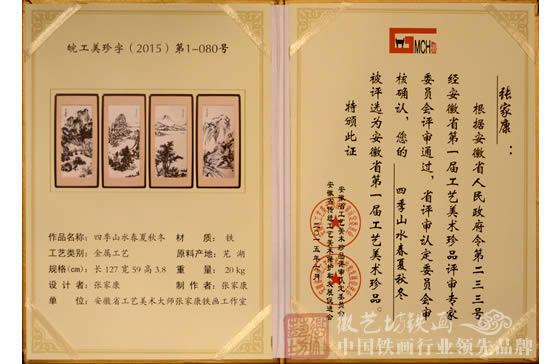 皖工美珍字（2015）第1-080号
作品名称：四季山水春夏秋冬 材 质：铁
工艺类别：金属工艺 原料产地：芜湖
规格(cm)：长127宽59高3.8 重 量：20kg
设 计 者：张家康 制 作 者：张家康
单 位：安徽省工艺美术大师张家康铁画工作室
MCH
张家康：
根据安徽省人民政府令第二三三号
经安徽省第一届工艺美术珍品评审专家
委员会评审通过，省评审认定委员会审
核确认，您的 四季山水春夏秋冬
被评选为安徽省第一届工艺美术珍品。
特颁此证
安徽省工艺美术珍品评审认定委员会
徽艺坊铁画
中国铁画行业领先品牌